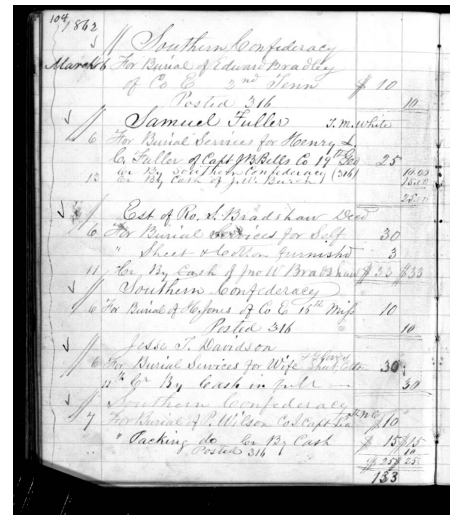 104
1862
" Southern Confederacy
March 6 For Burial of Edward Bradley
of Co E 2nd Tenn $ 10
Posted 316 10
" Samuel Fuller T. M. White
6 For Burial Services for Henry &
C. Fuller of Capt J B Betts Co 17th Geo 25
Southern Confederacy (316) 10.00
13 Cr By Cash of J. W. 15.00
25.00
" Est of Ro. S. Bradshaw Decd
6 For Burial Services for Self 30
" Sheet & Cotton furnished 3
11 Cr By Cash of Jno W Bradshaw $ 33 $ 33
" Southern Confederacy
6 For Burial of H. Jones of Co E 15th Miss 10
Posted 316 10
Jesse T. Davidson
6 For Burial Services for Wife 30
Cr By Cash in full 30
" Southern Confederacy
7 For Burial of P. Wilson Co Capt $ 10
" Packing do Cr By Cash $ 15 $ 15
Posted 316 10
$ 25 $ 25
133